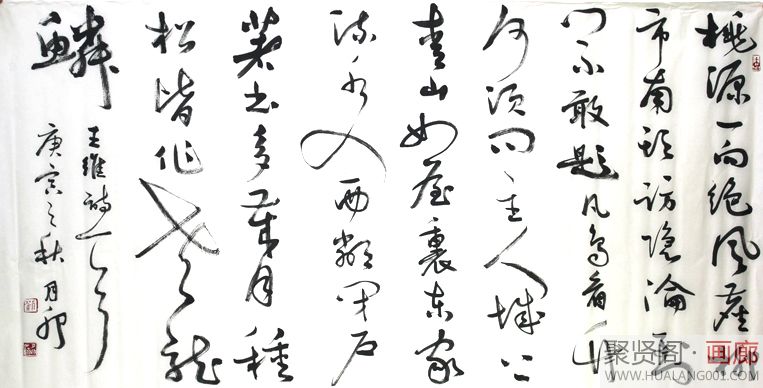 桃源一向绝风尘柳
市南头访隐沦到
门不敢题凡鸟看竹
何须问主人城上
青山如屋裏东家
流水入西邻闭户
著书多岁月種
松皆作老龙
鳞
王维诗一首
庚寅之秋月
聚贤阁·画廊
WWW.HUALANG001.COM